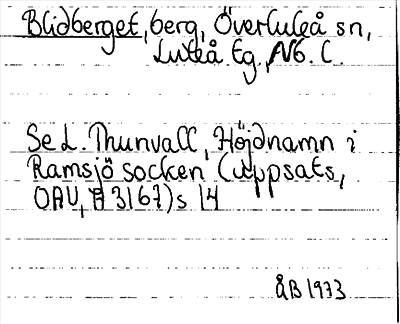 Blidberget, berg, Överluleå sn,
Luleå tg., Nb. l.
Se L. Thunvall, Höjdnamn i
Ramsjö socken (uppsats,
OAU, 3167) s 14
ÅB 1973